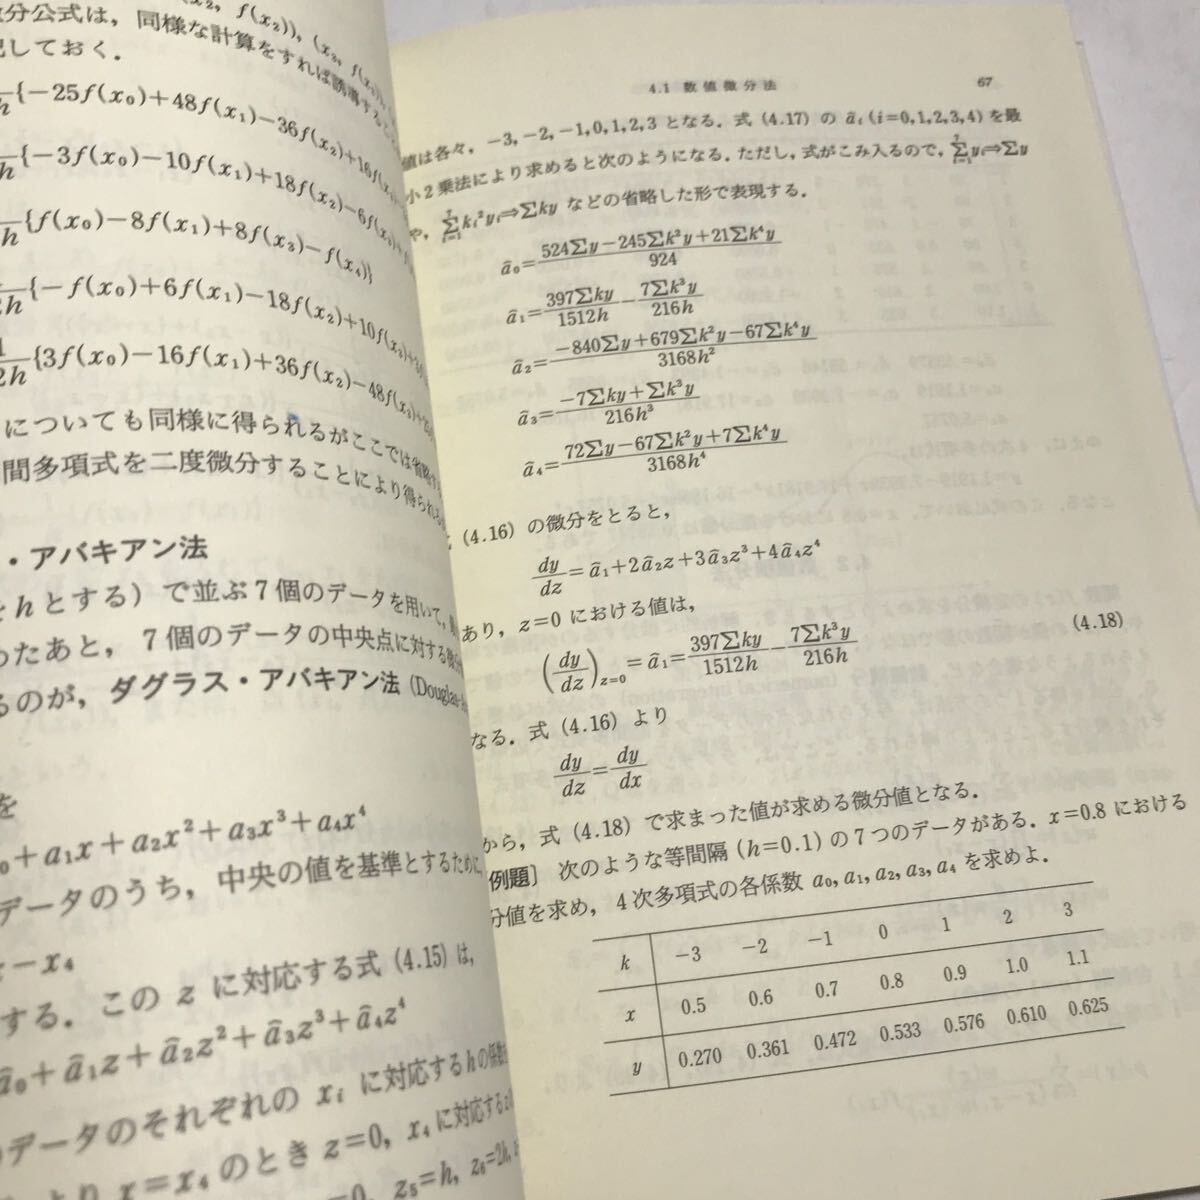 (x₂, f(x₂)), (x₃, f(x₃)),
分公式は，同様な計算をすれば誘導すること
記しておく．
{−25f(x₀)+48f(x₁)−36f(x₂)+16f(x₃)
{−3f(x₀)−10f(x₁)+18f(x₂)−6f(x₃)+
{f(x₀)−8f(x₁)+8f(x₃)−f(x₄)}
{−f(x₀)+6f(x₁)−18f(x₂)+10f(x₃)+
{3f(x₀)−16f(x₁)+36f(x₂)−48f(x₃)+
についても同様に得られるがここでは省略する
間多項式を二度微分することにより得られる
・アバキアン法
をhとする）で並ぶ7個のデータを用いて，
ったあと，7個のデータの中央点に対する微分
るのが，ダグラス・アバキアン法 (Douglas-
を
+a₁x+a₂x²+a₃x³+a₄x⁴
データのうち，中央の値を基準とするために，
−x₄
する．この z に対応する式 (4.15) は，
â₀+â₁z+â₂z²+â₃z³+â₄z⁴
のデータのそれぞれの xᵢ に対応するhの係数
より x=x₄ のとき z=0, x₄に対応する
=0, z₅=h, z₆=2h,
4.1 数値微分法 67
値は各々，−3,−2,−1,0,1,2,3 となる．式 (4.17) の âᵢ (i=0,1,2,3,4) を最
小2乗法により求めると次のようになる．ただし，式がこみ入るので，Σ⁷ᵢ₌₁yᵢ⇒Σy
や，Σ⁷ᵢ₌₁kᵢ²yᵢ⇒Σky などの省略した形で表現する．
â₀=(524Σy−245Σk²y+21Σk⁴y)/924
â₁=397Σky/1512h−7Σk³y/216h
â₂=(−840Σy+679Σk²y−67Σk⁴y)/3168h²
â₃=(−7Σky+Σk³y)/216h³
â₄=(72Σy−67Σk²y+7Σk⁴y)/3168h⁴
(4.16) の微分をとると，
dy/dz=â₁+2â₂z+3â₃z³+4â₄z⁴
あり，z=0 における値は，
(dy/dz)z=0=â₁=397Σky/1512h−7Σk³y/216h (4.18)
なる．式 (4.16) より
dy/dz=dy/dx
から，式 (4.18) で求まった値が求める微分値となる．
例題］ 次のような等間隔 (h=0.1) の7つのデータがある．x=0.8 における
分値を求め，4次多項式の各係数 a₀, a₁, a₂, a₃, a₄ を求めよ．
k −3 −2 −1 0 1 2 3
x 0.5 0.6 0.7 0.8 0.9 1.0 1.1
y 0.270 0.361 0.472 0.533 0.576 0.610 0.625